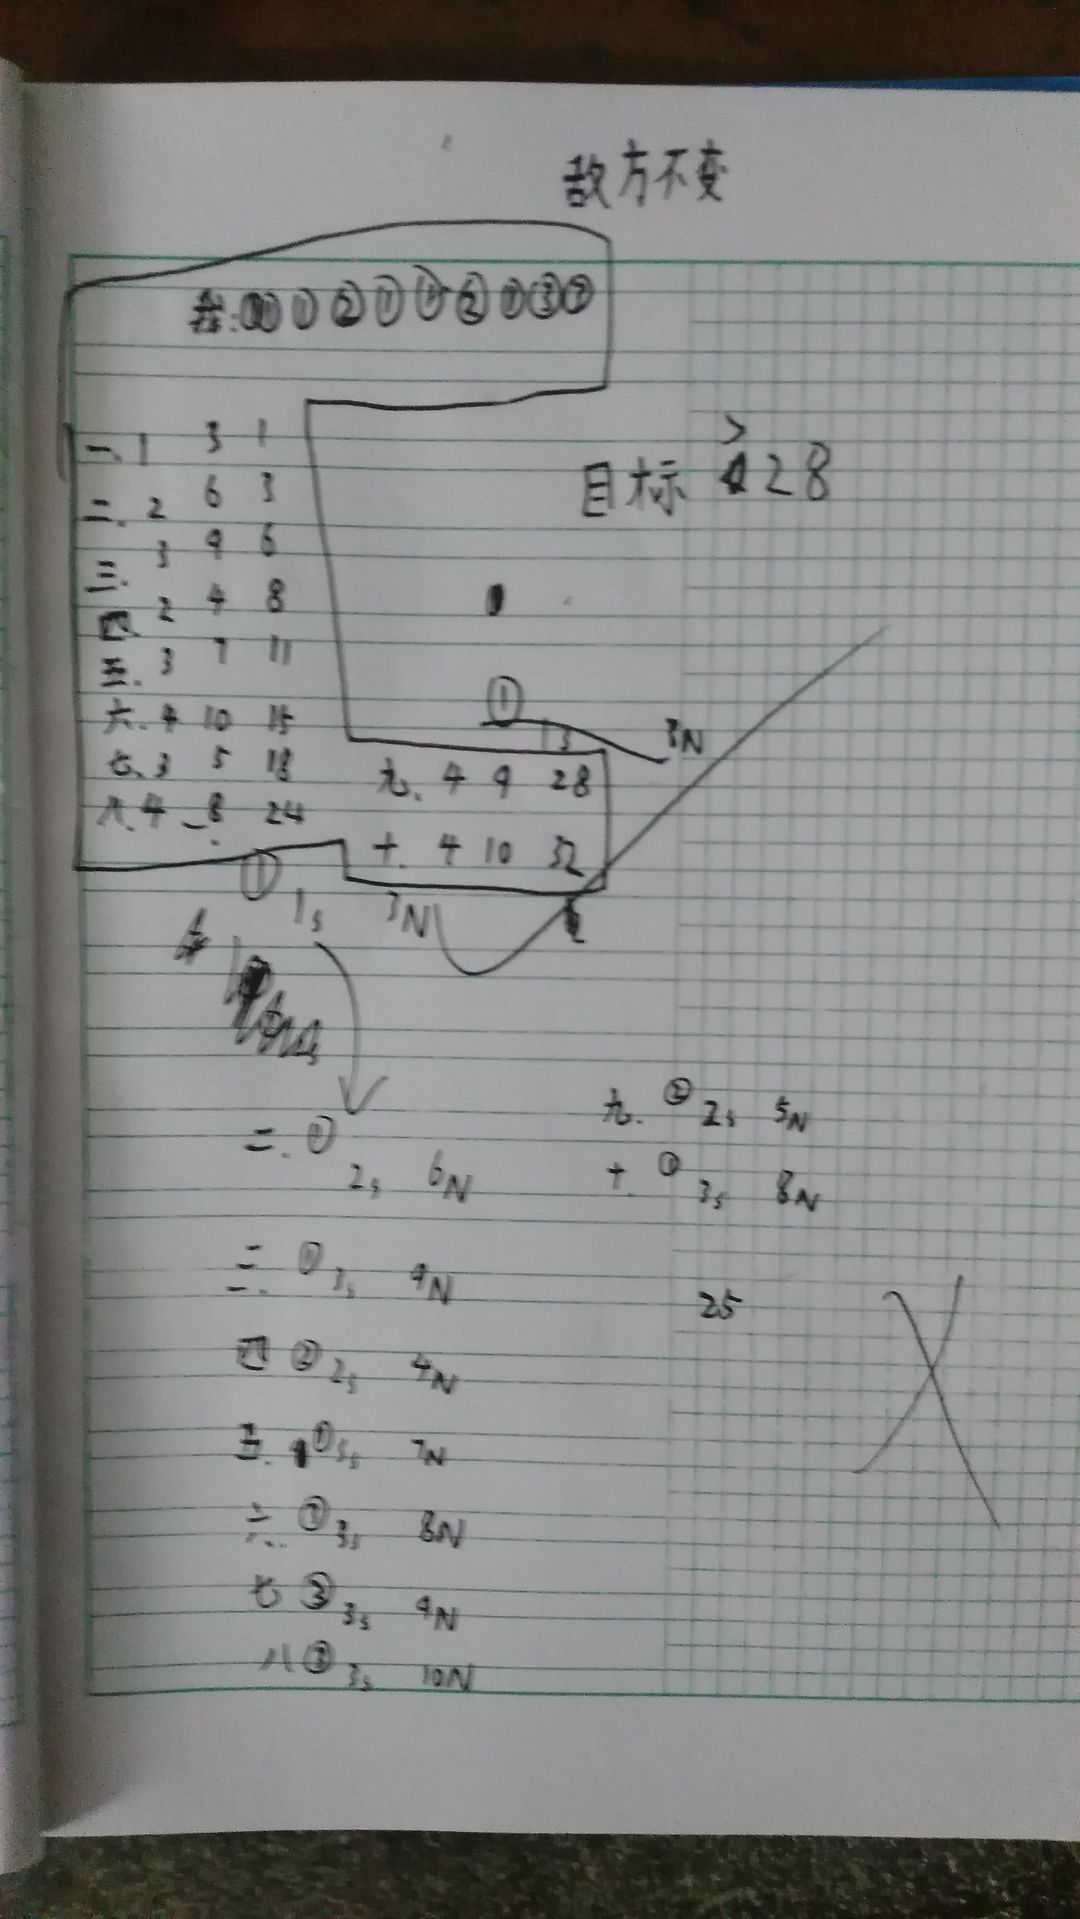 敌方不变
我: ① ② ① ① ② ① ③ ②
一. 1 3 1
二. 2 6 3
三. 3 9 6
四. 2 4 8
五. 3 7 11
六. 4 10 15
七. 3 5 18
八. 4 8 24
目标 > 28
①
3N
九. 4 9 28
十. 4 10 32
① 1s 3N
二. ① 2s 6N
三. ① 3s 9N
四 ② 2s 4N
五. ① 3s 7N
六. ① 3s 8N
七 ③ 3s 9N
八 ③ 3s 10N
九. ② 2s 5N
十. ① 3s 8N
25